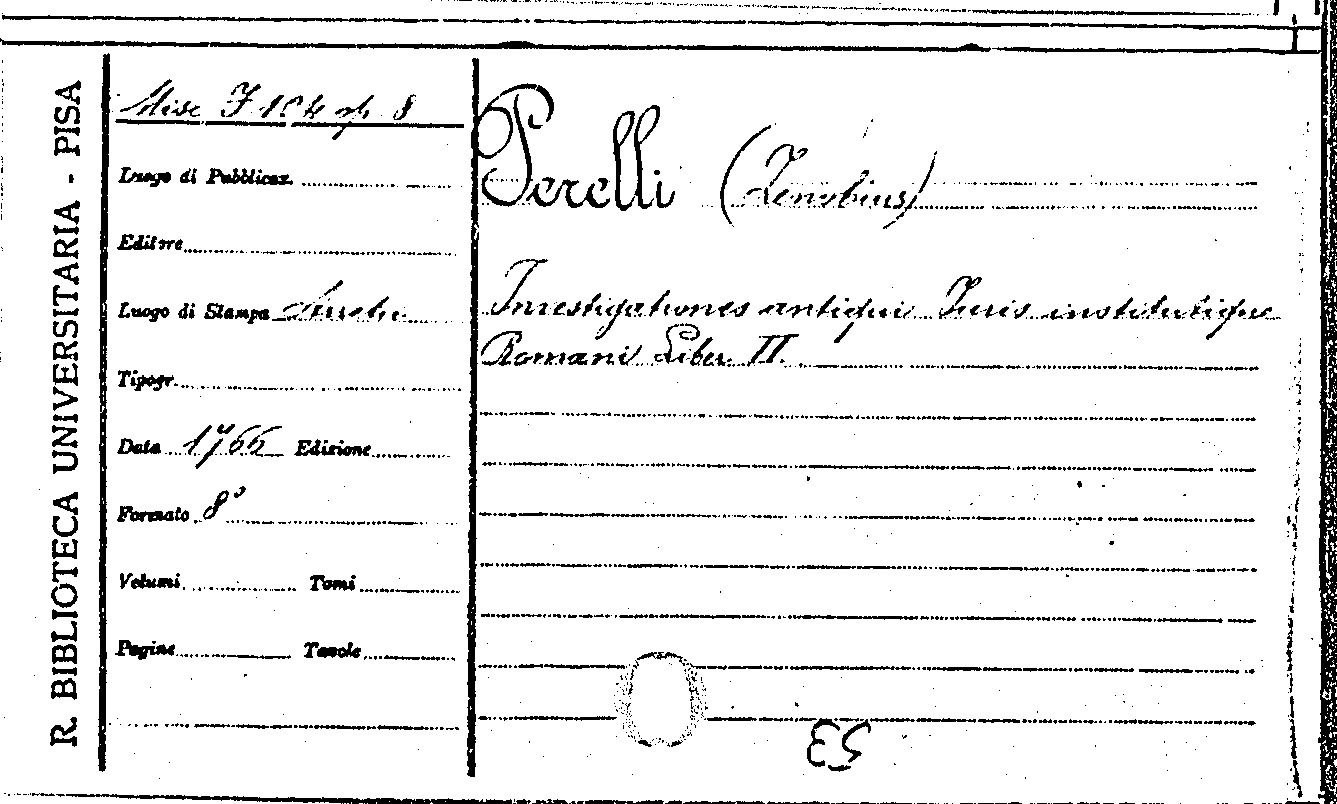 R. BIBLIOTECA UNIVERSITARIA - PISA
Misc. I 104 op. 8
Luogo di Pubblicaz.
Editore
Luogo di Stampa
Tipogr.
Data 1766 Edizione
Formato 8°
Volumi Tomi
Pagine Tavole
Perelli (Zenobius)
Investigationes antiqui Juris institutique
Romani Liber II.
53